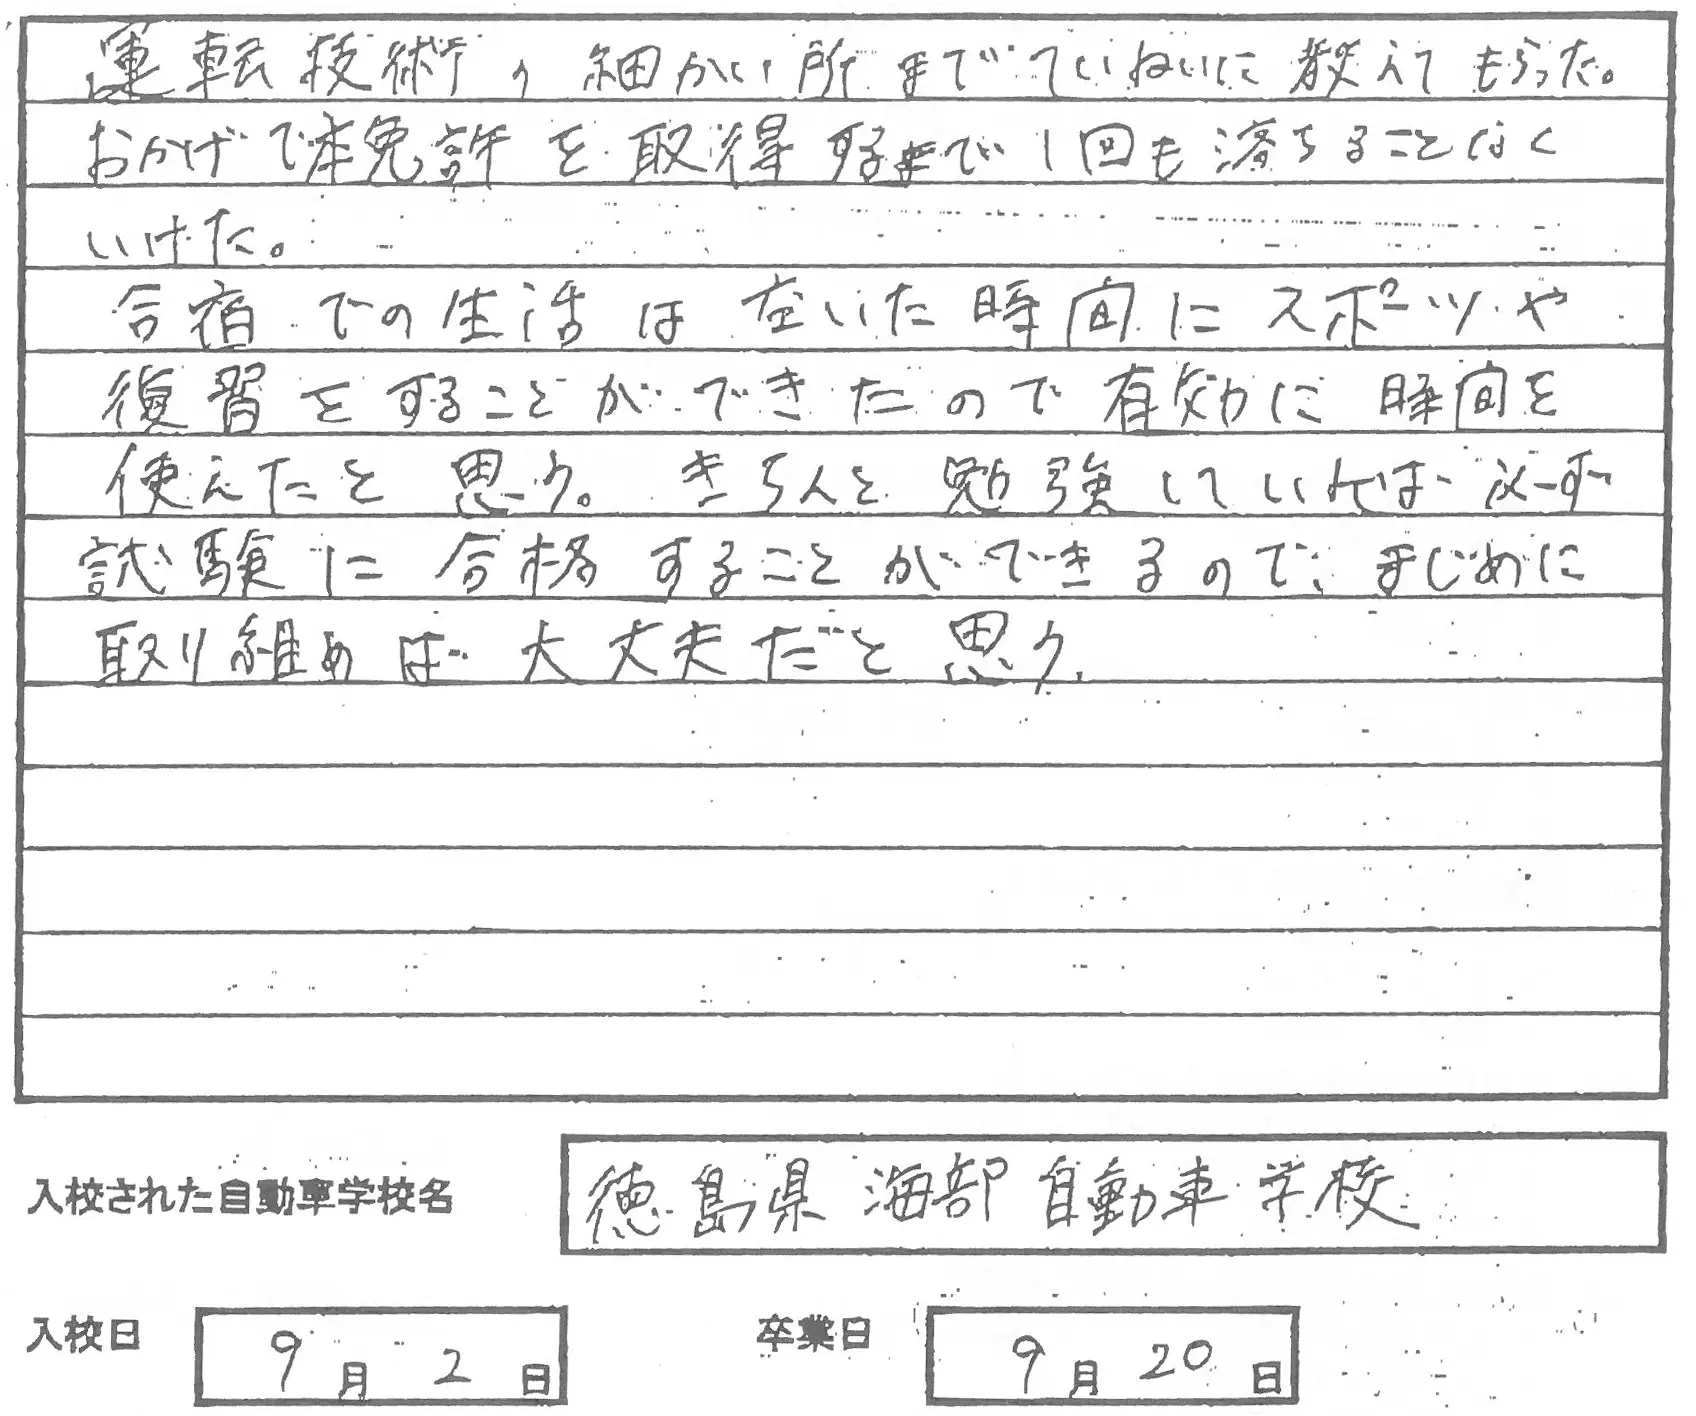 運転技術、細かい所までていねいに教えてもらった。
おかげで本免許を取得するまで1回も落ちることなく
いけた。
合宿での生活は空いた時間にスポーツや
復習をすることができたので有効に時間を
使えたと思う。きちんと勉強していれば必ず
試験に合格することができるので、まじめに
取り組めば大丈夫だと思う。
入校された自動車学校名 徳島県海部自動車学校
入校日 9月2日 卒業日 9月20日